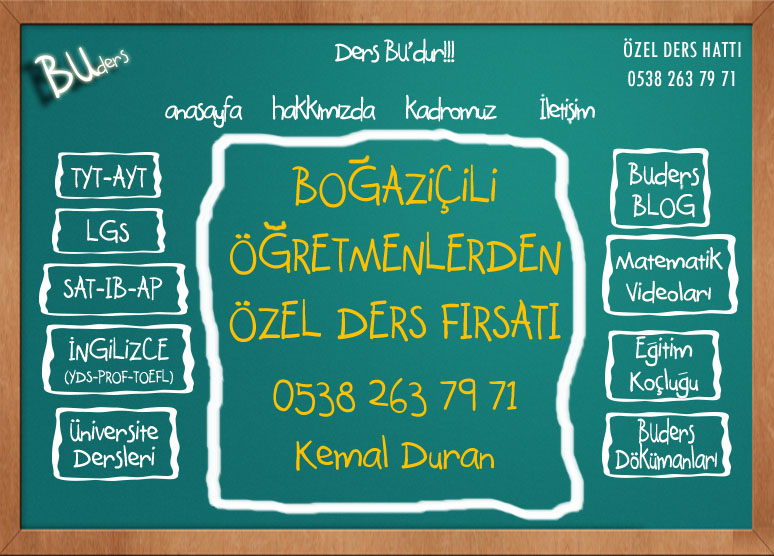 BUders
Ders BU'dur!!!
ÖZEL DERS HATTI
0538 263 79 71
anasayfa hakkımızda Kadromuz İletişim
TYT-AYT
LGS
SAT-IB-AP
İNGİLİZCE
(YDS-PROF-TOEFL)
Üniversite
Dersleri
BOĞAZİÇİLİ
ÖĞRETMENLERDEN
ÖZEL DERS FIRSATI
0538 263 79 71
Kemal Duran
Buders
BLOG
Matematik
Videoları
Eğitim
Koçluğu
Buders
DÖKÜMANLARI